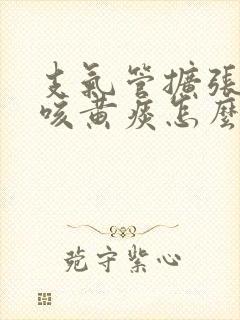 支氣管擴張
咳黃痰怎麼
苑守紫心